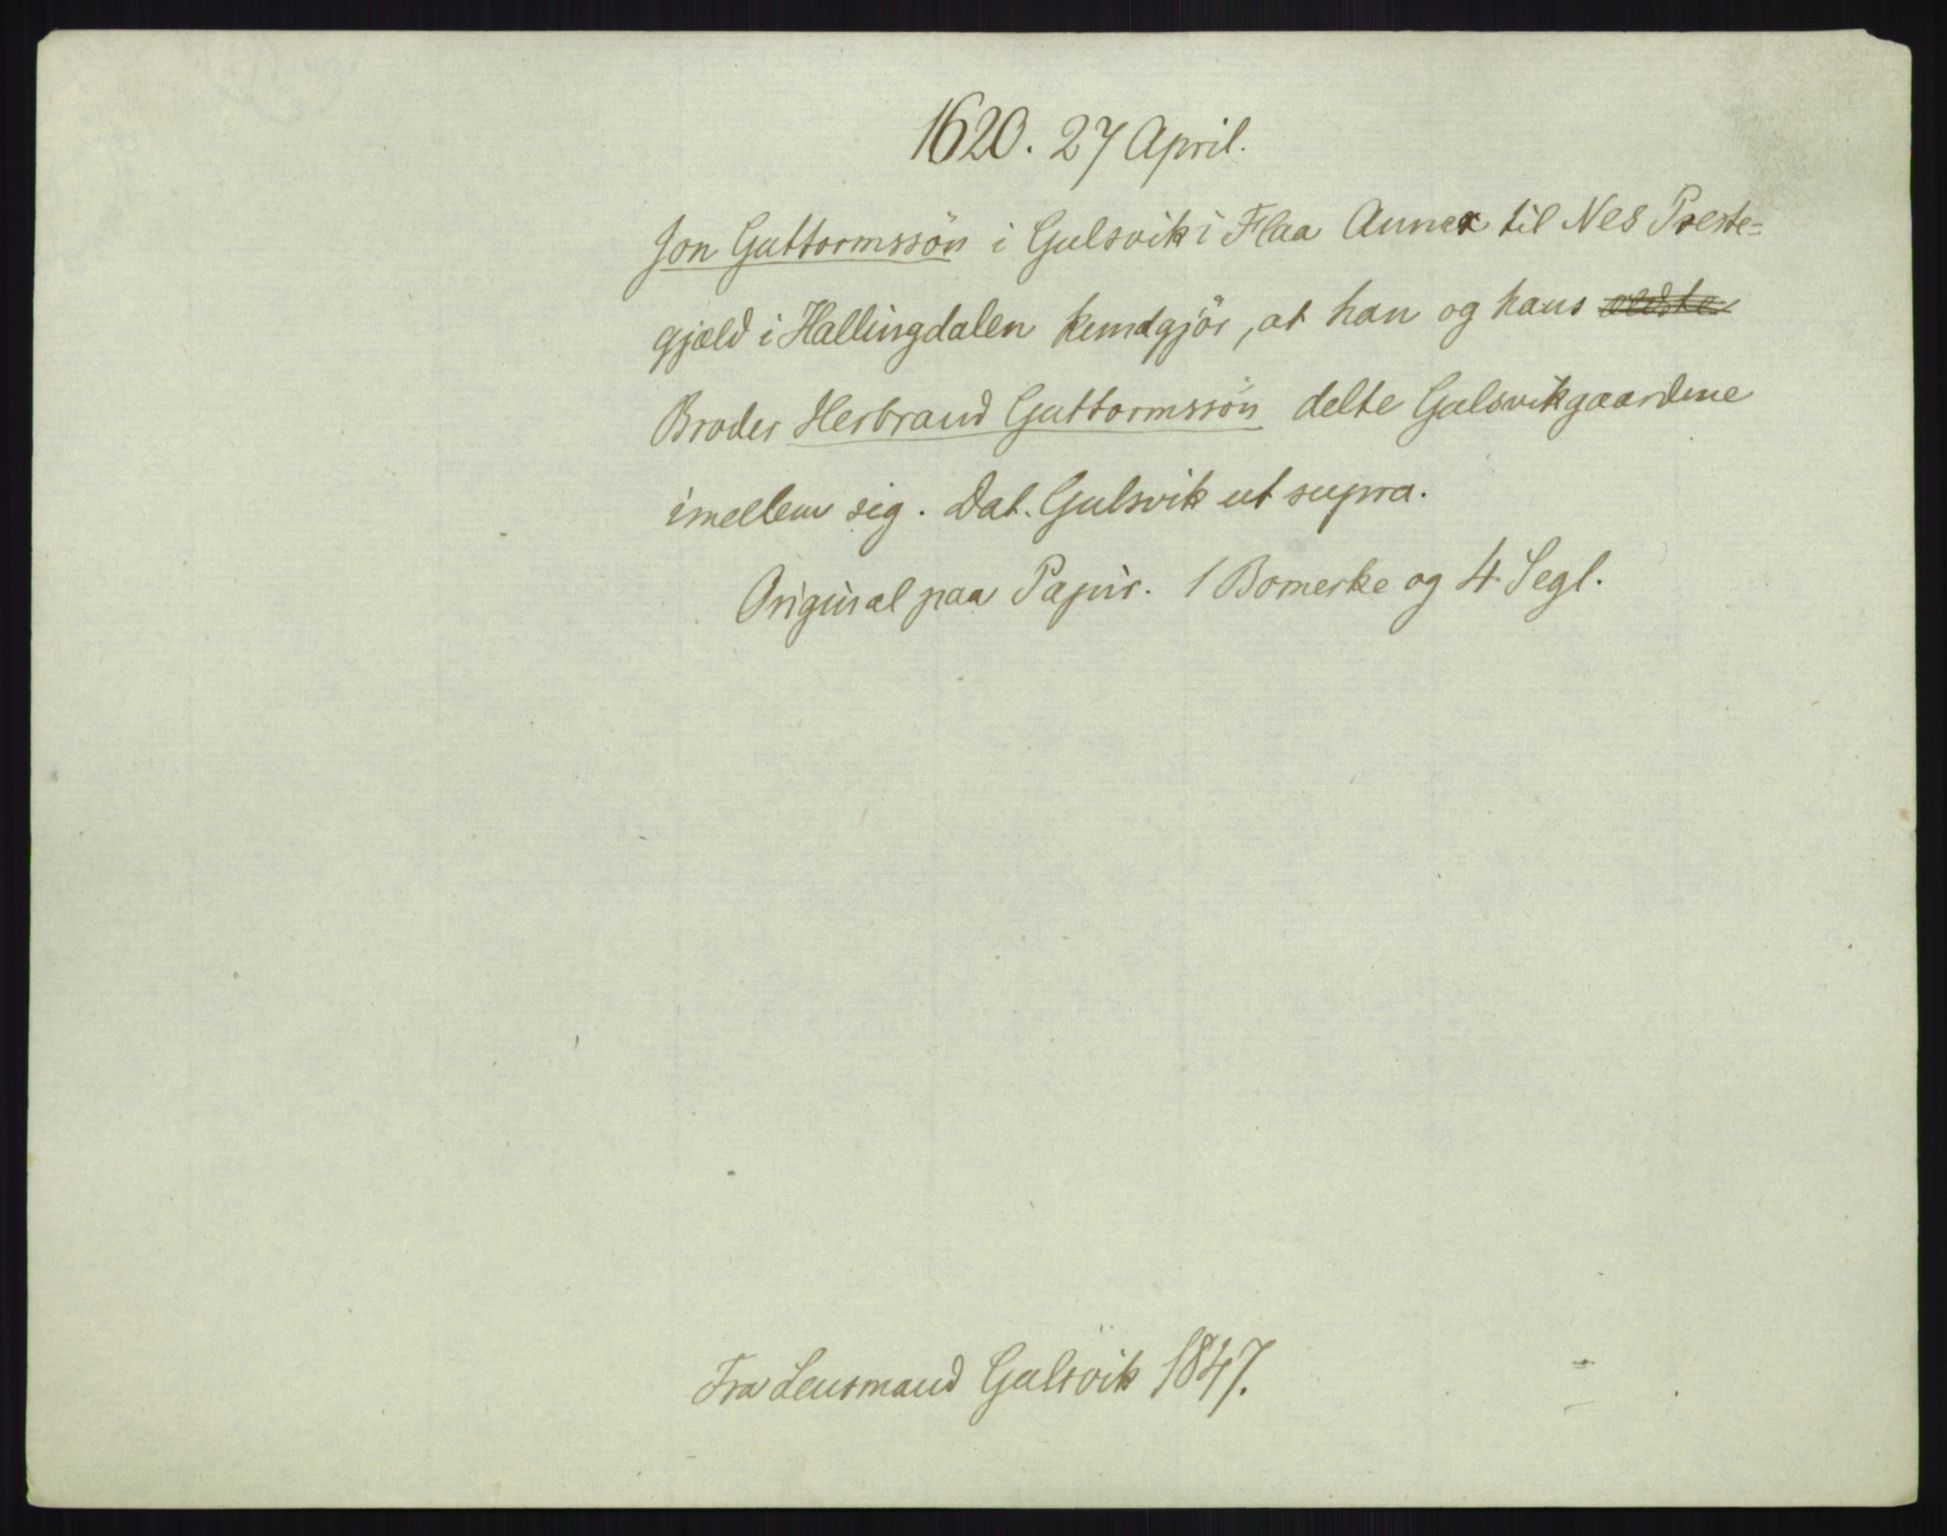 1620. 27 April.
Jon Guttormssön i Gulsvik i Flaa Annex til Nes Preste=
gjæld i Hallingdalen kundgjör, at han og hans ældste
Broder Herbrand Guttormssön delte Gulsvikgaardene
imellem sig. Dat. Gulsvik ut supra.
Original paa Papir. 1 Bomerke og 4 Segl.
Fra Lensmand Gulsvik 1847.